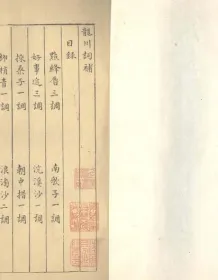 龍川詞補
目錄
點絳脣三調
南歌子一調
好事近三調
浣溪沙一調
採桑子一調
朝中措一調
柳梢青一調
浪淘沙二調